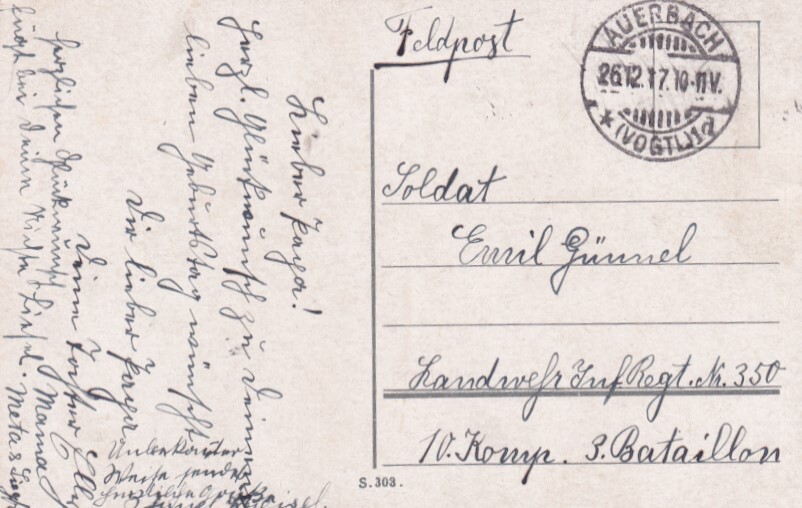 Feldpost
AUERBACH
26.12.17.10-11V.
* (VOGTL.) 1
Soldat
Emil Günnel
Landwehr Inf. Regt. N. 350
10. Komp. 3. Bataillon
S. 303.
Lieber Papa!
Herzl. Glückwünsch zu Deinem
lieben Geburtstag wünscht
Dir lieber Papa
Deine Tochter Elly
herzlichen Glückwunsch Mama
Deine Liesel. Meta &
Unbekannter
Weise sendet
herzliche Grüße